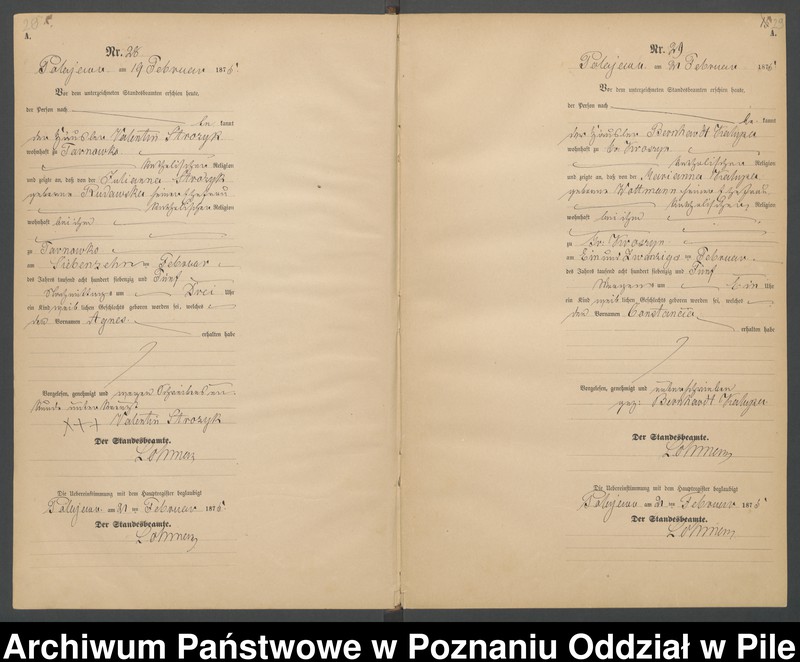 A.
Nr. 28
Polajewo am 19 Februar 1875
Vor dem unterzeichneten Standesbeamten erschien heute,
der Person nach
be kannt
der Häusler Valentin Strozyk
wohnhaft zu Tarnowko
katholischer Religion
und zeigte an, daß von der Julianna Strozyk
geborene Rudawska seiner Ehefrau
katholischer Religion
wohnhaft bei ihm
zu Tarnowko
am Siebenzehn ten Februar
des Jahres tausend acht hundert siebenzig und Fünf
Nachmittags um Drei Uhr
ein Kind weib lichen Geschlechts geboren worden sei, welches
den Vornamen Agnes
erhalten habe
Vorgelesen, genehmigt und wegen Schreibens un-
kunde unterkreuzt
+++ Valentin Strozyk
Der Standesbeamte.
Die Uebereinstimmung mit dem Hauptregister beglaubigt
Polajewo am 21 ten Februar 1875
Der Standesbeamte.
29
A.
Nr. 29
Polajewo am 21 Februar 1875
Vor dem unterzeichneten Standesbeamten erschien heute,
der Person nach
be kannt
der Häusler Bernhardt
wohnhaft zu Gr. Kroszyn
katholischer Religion
und zeigte an, daß von der Marianna
geborene Wottmann seiner Ehefrau
katholischer Religion
wohnhaft bei ihm
zu Gr. Kroszyn
am Ein und Zwanzigsten Februar
des Jahres tausend acht hundert siebenzig und Fünf
Morgens um Ein Uhr
ein Kind weib lichen Geschlechts geboren worden sei, welches
den Vornamen Constancia
erhalten habe
Vorgelesen, genehmigt und unterschrieben
gez: Bernhardt
Der Standesbeamte.
Die Uebereinstimmung mit dem Hauptregister beglaubigt
Polajewo am 21 ten Februar 1875
Der Standesbeamte.
Archiwum Państwowe w Poznaniu Oddział w Pile